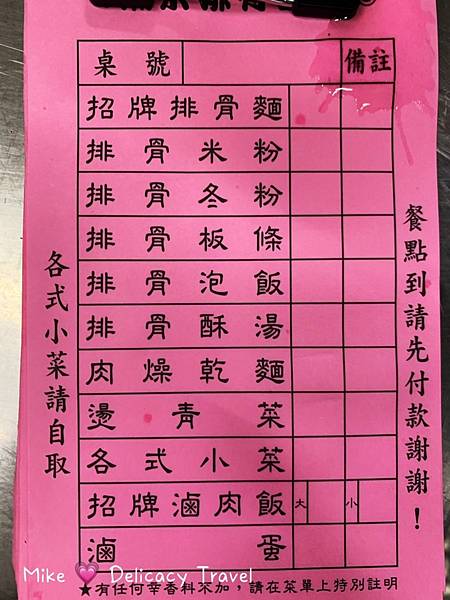 桌號 備註
招牌排骨麵
排骨米粉
排骨冬粉
排骨板條
排骨泡飯
排骨酥湯
肉燥乾麵
燙青菜
各式小菜
招牌滷肉飯 大 小
滷蛋
★有任何辛香料不加，請在菜單上特別註明
各式小菜請自取
餐點到請先付款謝謝！
Mike 💗 Delicacy Travel